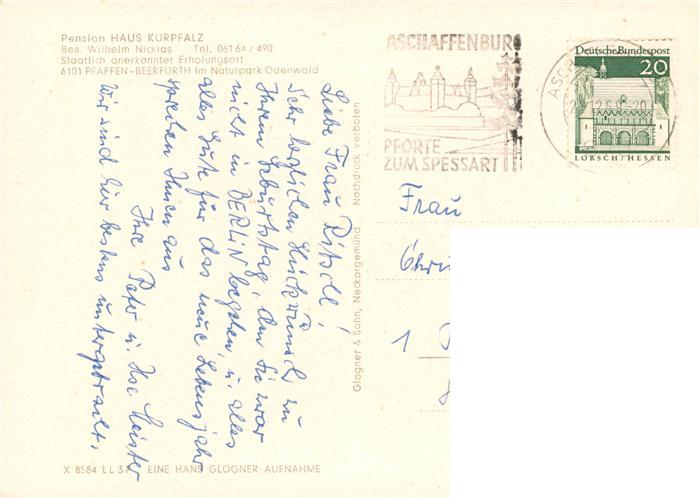 Pension HAUS KURPFALZ
Bes. Wilhelm Nicklas Tel. 061 64 / 490
Staatlich anerkannter Erholungsort
6101 PFAFFEN-BEERFURTH im Naturpark Odenwald
Liebe Frau
Sehr herzlichen Glückwunsch zu
Ihrem Geburtstag, den Sie zwar
nicht in BERLIN begehen, u. alles
alles Gute für das neue Lebensjahr
sprechen Ihnen aus
Ihre Peter u. Ilse Meister
Wir sind hier bestens untergebracht.
X 8584 LL 3 EINE HANS GLOGNER AUFNAHME
Glogner & Sohn, Neckargemünd Nachdruck verboten
ASCHAFFENBURG
PFORTE
ZUM SPESSART
ASCH
Deutsche Bundespost
20
LORSCH/HESSEN
Frau
Chri
1